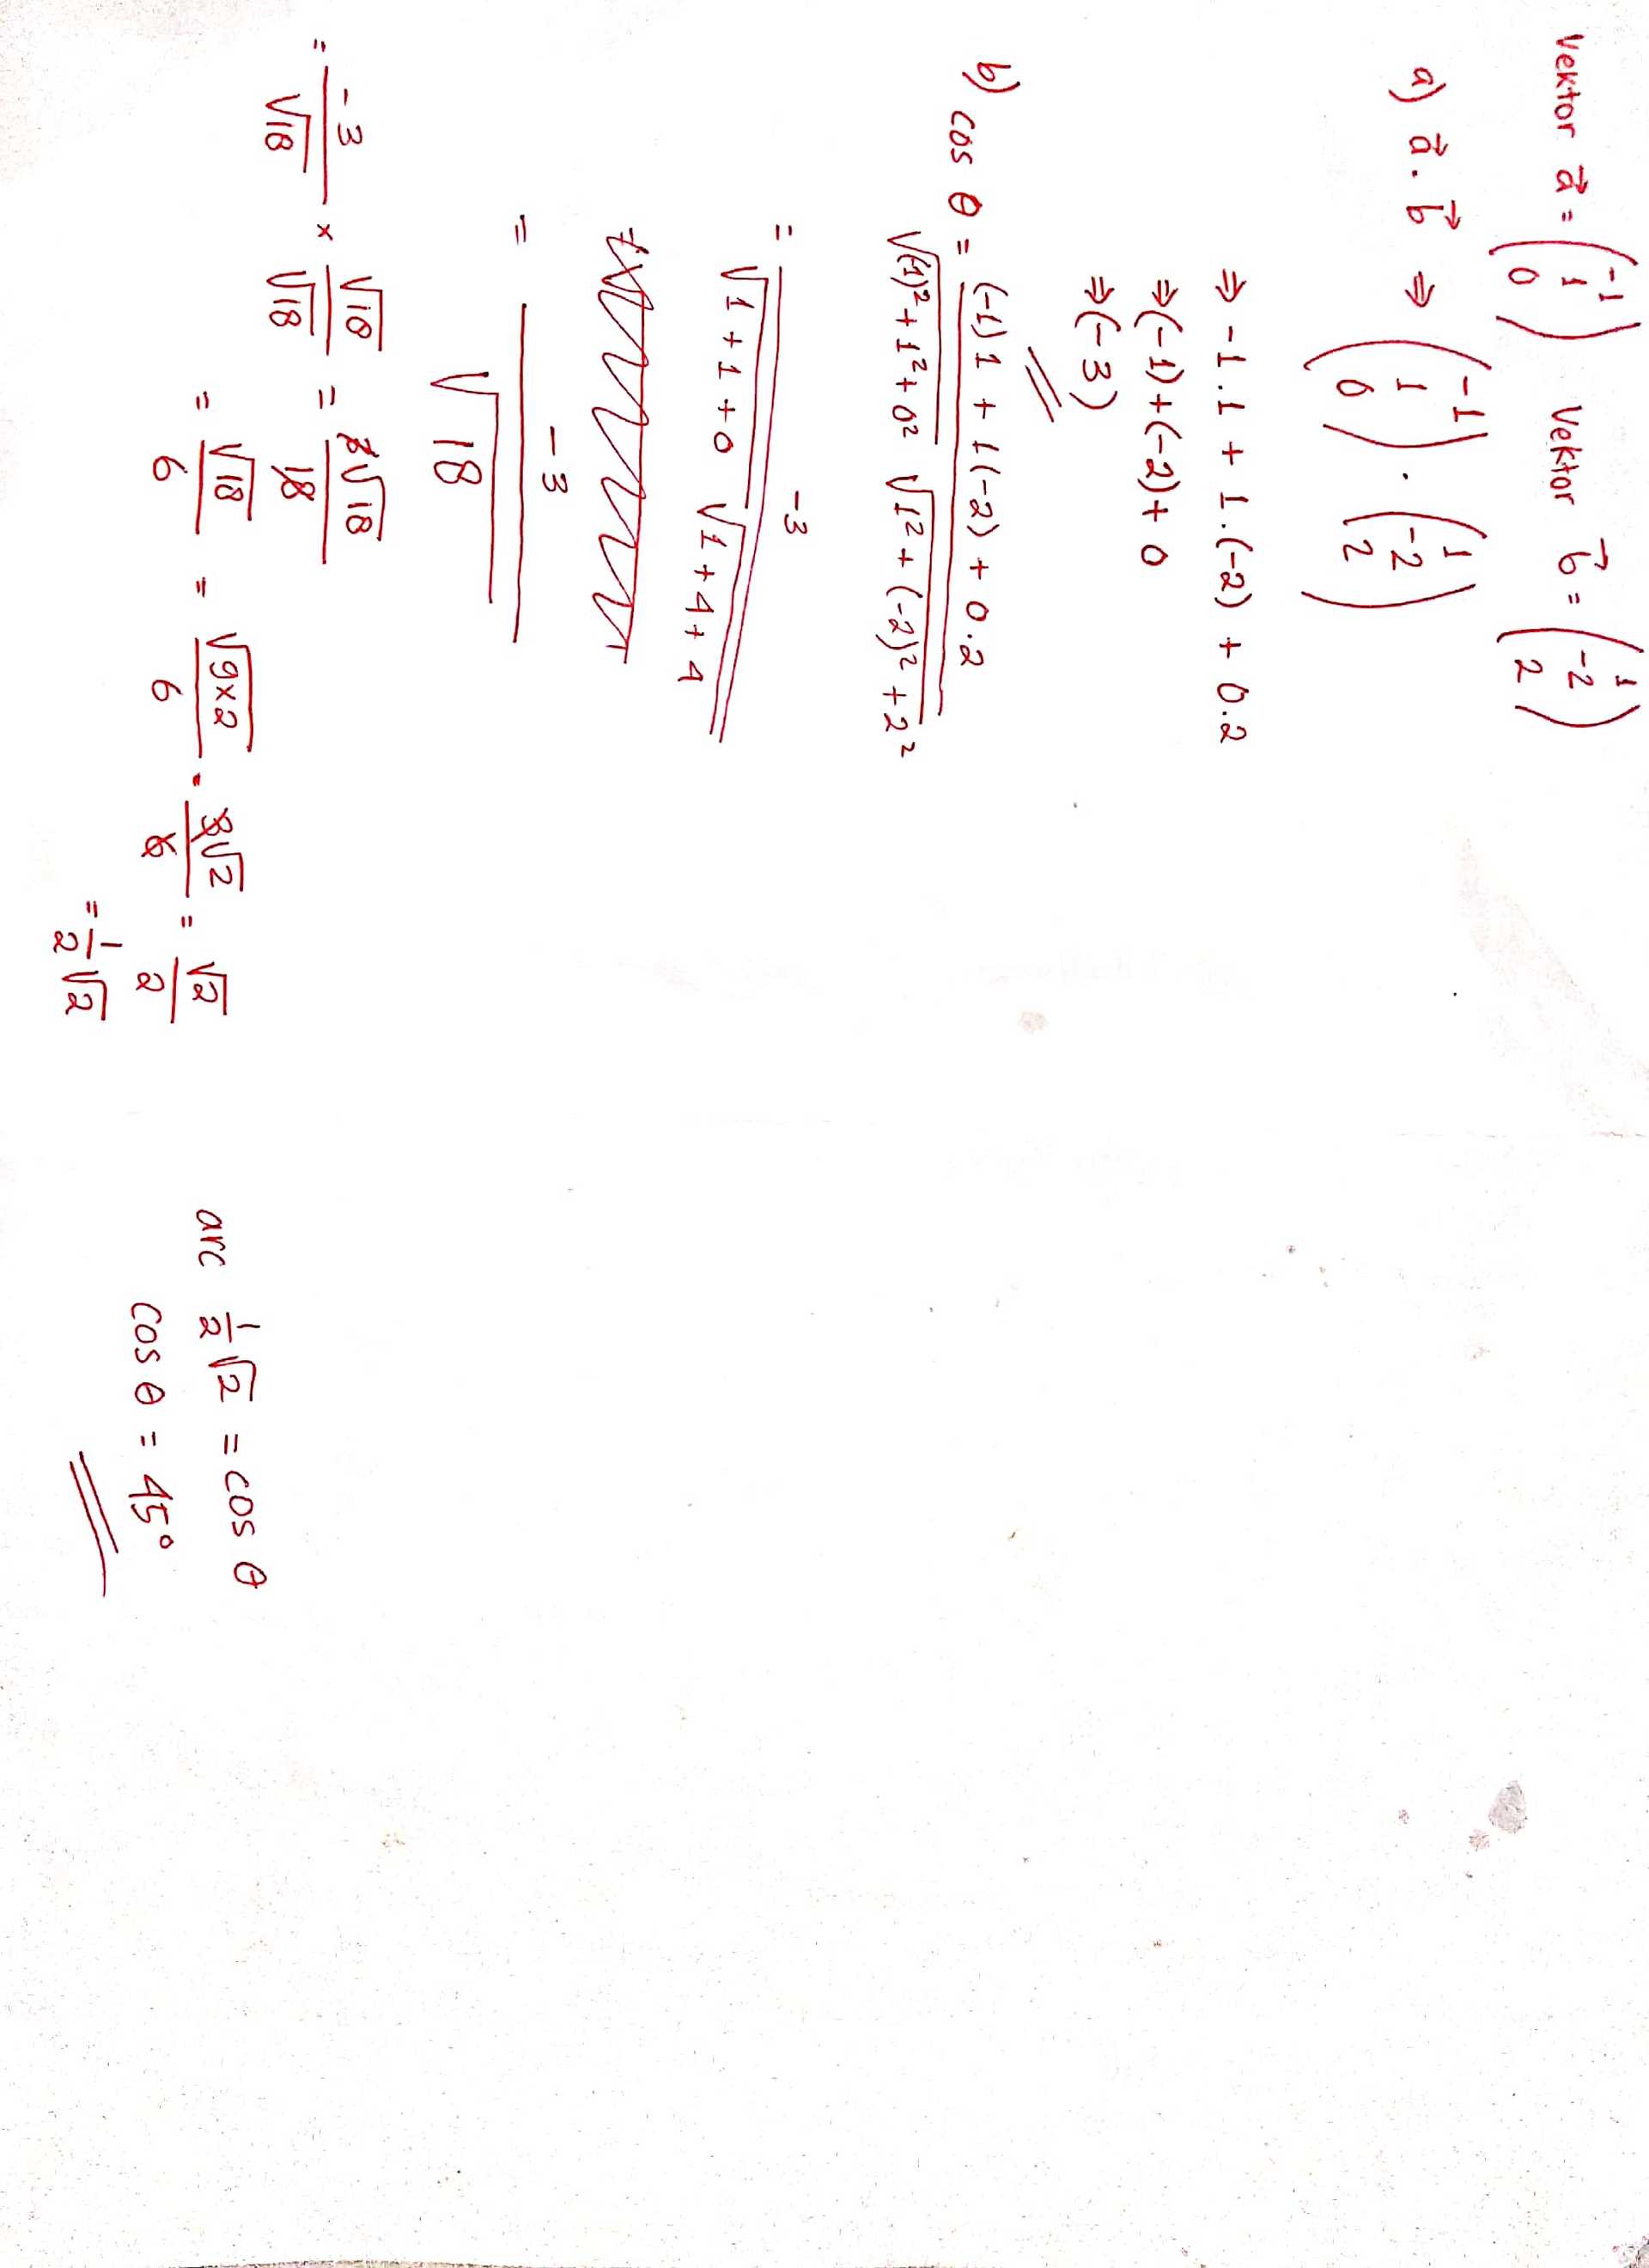 Vektor a⃗ = (-1 1 0) Vektor b⃗ = (1 -2 2)
a) a⃗ . b⃗ ⇒ (-1 1 0) . (1 -2 2)
⇒ -1.1 + 1.(-2) + 0.2
⇒ (-1)+(-2)+ 0
⇒ (-3)
b) cos θ = (-1)1 + 1(-2) + 0.2 / √(-1)²+1²+0² √1²+(-2)²+2²
= -3 / √1+1+0 √1+4+4
= -3 / √18
= -3/√18 × √18/√18 = 3√18/18
= √18/6 = √9×2/6 = 3√2/6 = √2/2
= 1/2 √2
arc 1/2 √2 = cos θ
cos θ = 45°